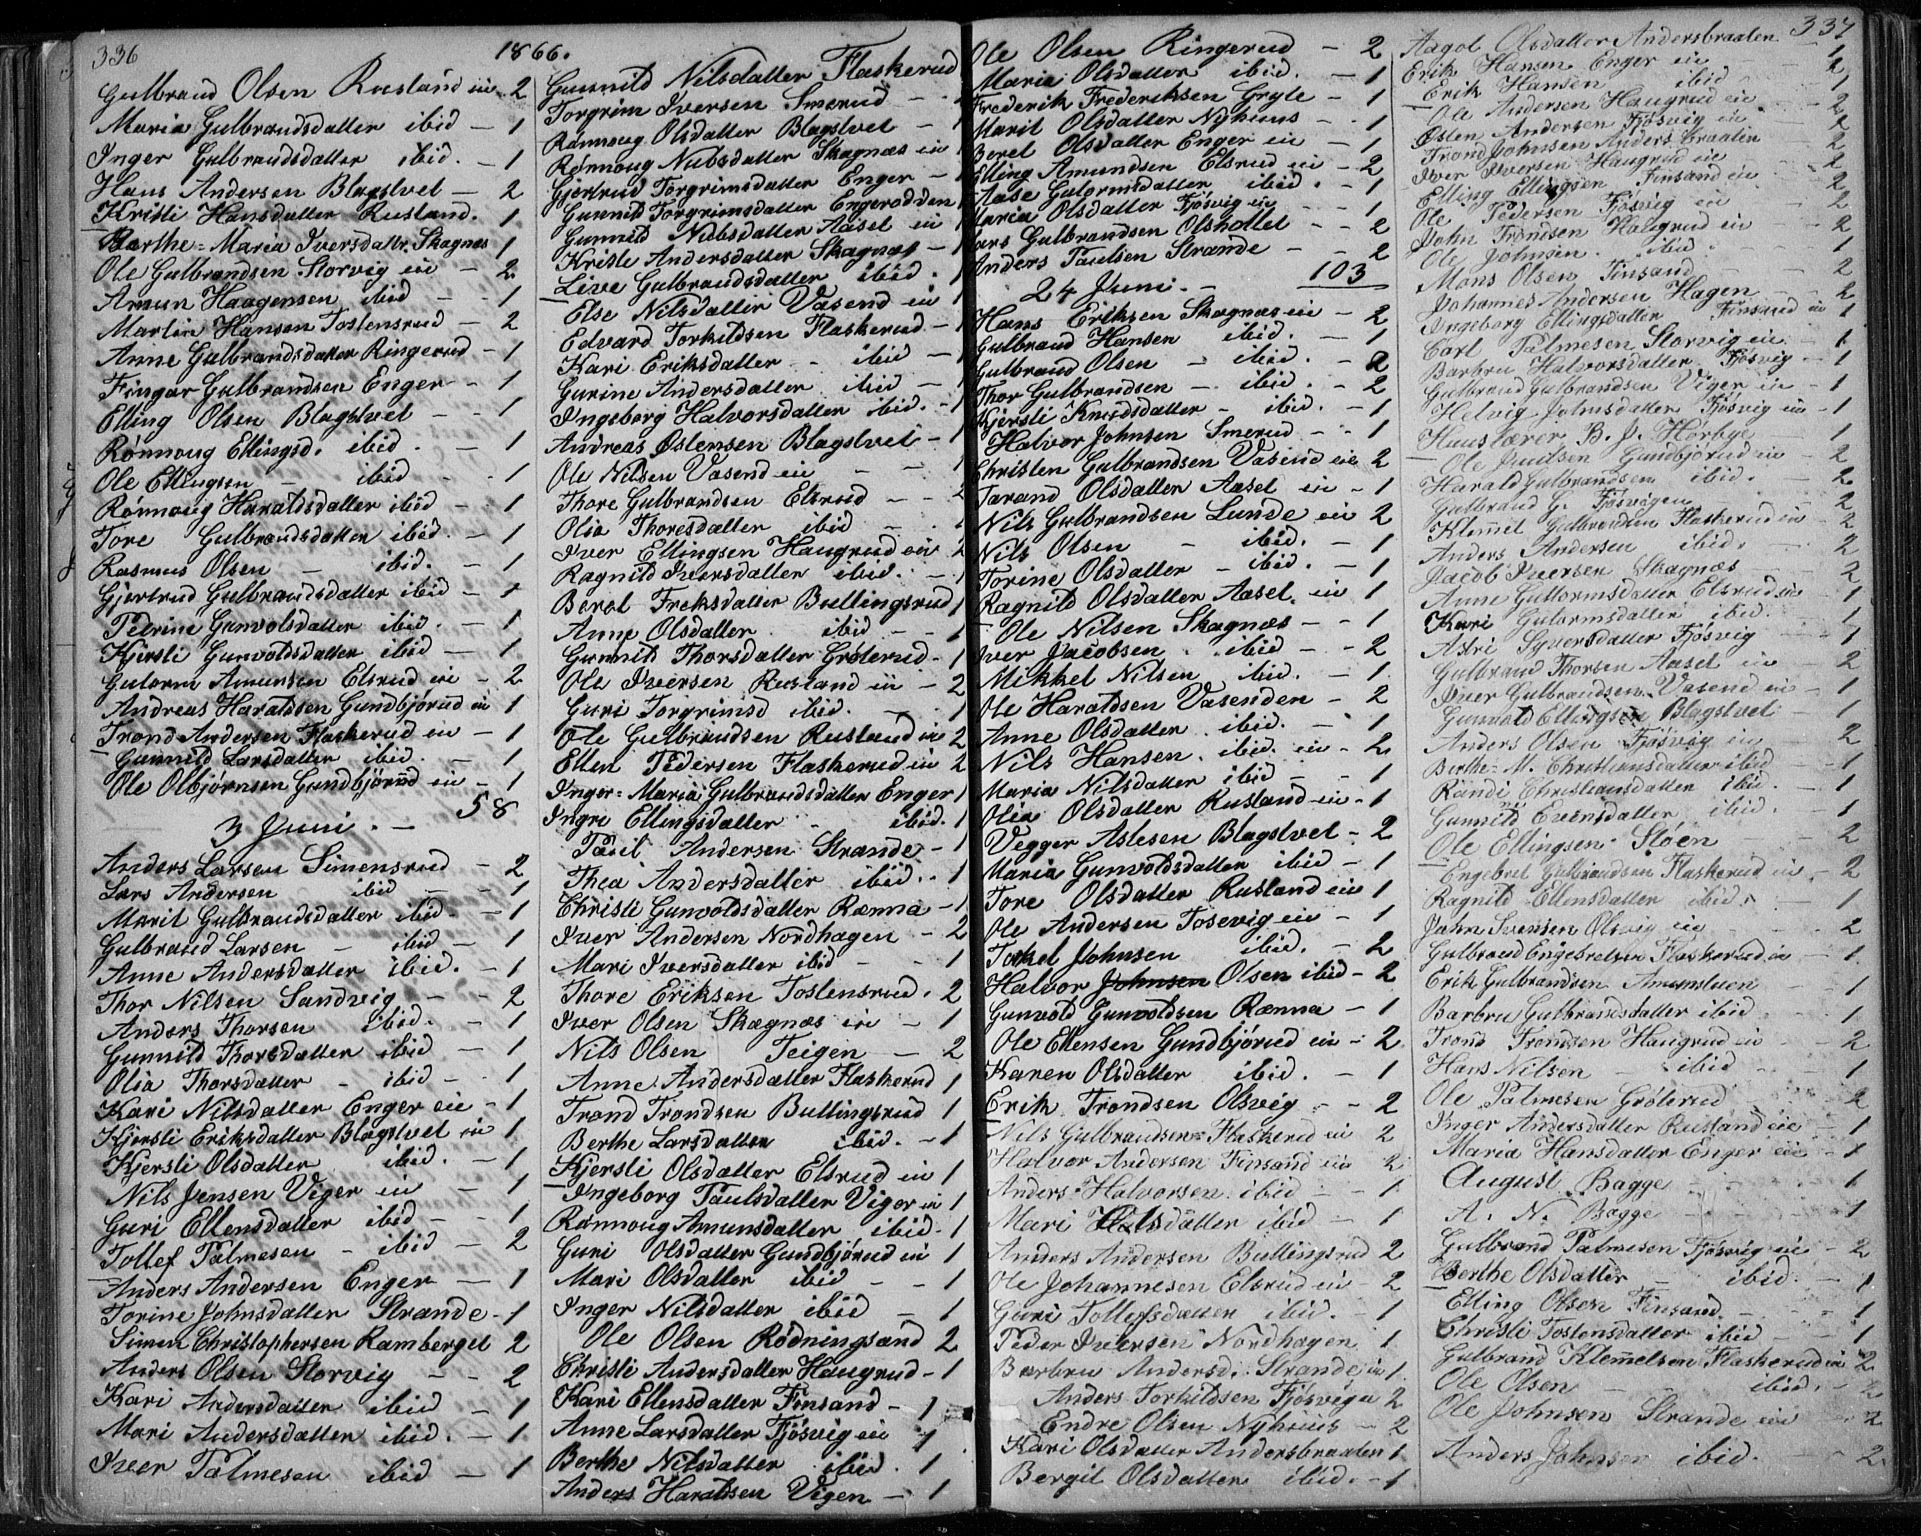 336
1866.
Gulbrand Olsen Rusland ei 2
Maria Gulbrandsdatter ibid — 1
Inger Gulbrandsdatter ibid. — 1
Hans Andersen Blagstvet — 2
Kristi Hansdatter Rusland. 1
Barthe=Maria Iversdatr. Skagnæs 1
Ole Gulbrandsen Storvig ei — 2
Amun Haagensen ibid — 1
Martin Hansen Tostensrud — 2
Anne Gulbrandsdatter Ringerud — 1
Fingar Gulbrandsen Enger — 1
Elling Olsen Blagstvet — 1
Rønnoug Ellingsd. ibid. — 1
Ole Ellingsen — ibid — 1
Rønnoug Haraldsdatter ibid — 1
Tore Gulbrandsdatter ibid. — 1
Rasmus Olsen — ibid. — 1
Gjertrud Gulbrandsdatter ibid — 1
Petrine Gunvolsdatter ibid. — 1
Kjersti Gunvoldsdatter ibid — 1
Gutorm Amunsen Elsrud ei — 2
Andreas Haraldsen Gundbjørud ei 1
Trond Andersen Flaskerud ei — 1
Gunnild Larsdatter ibid. — 1
Ole Olbjørnsen Gundbjørud ei — 1
58
3 Juni. —
Anders Larsen Simensrud — 2
Lars Andersen ibid — 1
Marit Gulbrandsdatter ibid. — 1
Gulbrand Larsen — ibid — 1
Anne Andersdatter ibid. — 1
Thor Nilsen Sandvig — 2
Anders Thorsen ibid. — 1
Gunnild Thorsdatter ibid — 1
Olia Thorsdatter — ibid — 1
Kari Nilsdatter Enger ei — 1
Kjersti Eriksdatter Blagstvet ei 1
Kjersti Olsdatter ibid. — 1
Nils Jensen Viger ei — 1
Guri Ellensdatter ibid — 1
Tollef Palmesen — ibid — 2
Anders Andersen Enger — 1
Torine Johnsdatter Strande — 1
Simen Christophersen Ramberget 2
Anders Olsen Storvig — 2
Kari Andersdatter ibid — 1
Mari Andersdatter ibid. — 1
Iver Palmesen ibid — 1
Gunnild Nilsdatter Flaskerud
Torgrim Iversen Smerud —
Rønnoug Olsdatter Blagstvet — 1
Rønnoug Nubsdatter Skagnæs ei 1
Gjertrud Torgrimsdatter Enger — 1
Gunnild Torgrimsdatter Engerodden 1
Gunnild Nubsdatter Aasel ei 1
Kristi Andersdatter Skagnæs — 1
Live Gulbrandsdatter ibid. 1
Else Nilsdatter Vasend ei 1
Edvard Torkildsen Flaskerud — 1
Kari Eriksdatter — ibid — 1
Gurine Andersdatter ibid — 1
Ingeborg Halvorsdatter ibid. — 1
Andreas Østensen Blagstvet — 1
Ole Nilsen Vasend ei — 1
Thore Gulbrandsen Elsrud — 2
Olia Thoresdatter ibid — 1
Iver Ellingsen Haugrud ei 2
Ragnild Iversdatter ibid. — 1
Berel Freksdatter Bullingsrud 1
Anne Olsdatter ibid — 1
Gunnild Thorsdatter Grøterud — 1
Ole Iversen Rusland ei — 2
Guri Torgrimsd ibid. — 1
Ole Gulbrandsen Rusland ei 2
Ellen Pedersen Flaskerud ei 2
Inger=Maria Gulbrandsdatter Enger 1
Ingri Ellingsdatter ibid. 1
Paul Andersen Strande — 1
Thea Andersdatter ibid. 1
Christi Gunvoldsdatter Rænna — 1
Iver Andersen Nordhagen — 2
Mari Iversdatter ibid — 1
Thore Eriksen Tostensrud. 2
Iver Olsen Skægnæs ei — 1
Nils Olsen Teigen — 2
Anne Andersdatter Flaskerud 1
Trond Trondsen Bullingsrud 1
Berthe Larsdatter ibid. — 1
Kjersti Olsdatter Elsrud ei 1
Ingeborg Paulsdatter Viger ei 1
Rønnoug Amunsdatter ibid. 1
Guri Olsdatter Gundbjørud ei 1
Mari Olsdatter ibid — 1
Inger Nilsdatter ibid — 1
Ole Olsen Rødningsand 2
Christi Andersdatter Haugrud — 1
Kari Ellensdatter Finsand — 1
Anne Larsdatter Fjøsvig ei 1
Berthe Nilsdatter ibid. 1
Anders Haraldsen Vigen — 1
337
Ole Olsen Ringerud — 2
Maria Olsdatter ibid. — 1
Frederik Frederiksen Gryte — 1
Marit Olsdatter Nyhuus — 1
Beret Olsdatter Enger ei — 1
Elling Amundsen Elsrud ei — 2
Aase Gutormsdatter ibid. — 1
Maria Olsdatter Fjøsvig ei — 1
Lars Gulbrandsen Olshollet — 2
Anders Paulsen Strande — 2
103
24 Juni. —
Hans Eriksen Skagnæs ei — 2
Gulbrand Hansen ibid. — 1
Gulbrand Olsen — ibid. — 2
Thor Gulbrandsen — ibid. — 2
Kjersti Knudsdatter — ibid. — 1
Halvor Johnsen Smerud — 1
Christen Gulbrandsen Vasend ei 2
Tarand Olsdatter Aasel ei — 1
Nils Gulbrandsen Lunde ei 2
Nils Olsen — ibid. — 1
Torine Olsdatter — ibid. — 1
Ragnild Olsdatter Aasel. ei 1
Ole Nilsen Skagnæs — 1
Iver Jacobsen ibid — 2
Mikkel Nilsen ibid. — 1
Ole Haraldsen Vasenden — 2
Anne Olsdatter ibid. — 1
Nils Hansen. ibid. ei — 2
Maria Nilsdatter ibid — 1
Olia Olsdatter Rusland ei — 1
Vegger Aslesen Blagstvet — 2
Maria Gunvoldsdatter ibid — 1
Tore Olsdatter Rusland ei 1
Ole Andersen Fosevig ei — 1
Torkel Johnsen ibid. — 2
Halvor Johnsen Olsen ibid — 2
Gunvold Gunvoldsen Rænna — 1
Ole Ellensen Gundbjørud ei — 2
Karen Olsdatter ibid. — 1
Erik Trondsen Olsvig — 2
Nils Gulbrandsen Flaskerud ei 2
Halvor Andersen Finsand ei 2
Anders Halvorsen ibid — 1
Mari Olsdatter ibid — 1
Anders Andersen Bullingsrud 2
Ole Johannesen Elsrud ei — 2
Guri Tollefsdatter ibid. — 1
Peder Iversen Nordhagen 1
Barbru Andersd. Strande ei 1
Anders Torkildsen Fjøsvig ei 2
Endre Olsen Nyhuus — 2
Kari Olsdatter Andersbraaten 1
Bergit Olsdatter ibid. — 1
Aagot Olsdatter Andersbraaten 1
Erik Hansen Enger ei — 2
Erik Hansen ibid 1
Ole Andersen Haugrud ei — 2
Østen Andersen Fjøsvig ei — 2
Trond Johnsen Andersbraaten 2
Iver Iversen Haugrud ei — 2
Elling Ellingsen Finsand ei 2
Ole Pedersen Fjøsvig ei — 2
John Trondsen Haugrud ei — 2
Ole Johnsen. ibid. 1
Mons Olsen Finsand — 2
Johannes Andersen Hagen — 2
Ingeborg Ellingsdatter Finsand ei 1
Carl Palmesen Storvig ei. 1
Barbru Halvorsdatter Fjøsvig — 1
Gulbrand Gulbrandsen Viger ei 1
Helvig Johnsdatter Fjøsvig ei — 1
Huuslærer B. J. Hørbye 1
Ole Juulsen Gundbjørud ei — 2
Harald Gulbrandsen ibid. — 2
Gulbrand G. Fjøsvigen 2
Klemmet Gulbrandsen Flaskerud ei — 2
Anders Andersen ibid. 2
Jacob Iversen Skagnæs — 2
Anne Guttormsdatter Elsrud ei 1
Kari Gutormsdatter ibid. 1
Astri Syversdatter Fjøsvig — 1
Gulbrand Thorsen Aasel ei — 2
Iver Gulbrandsen Vasend ei — 1
Gunvold Ellingsen Blagstvet 1
Anders Olsen Fjøsvig ei 2
Berthe=M. Christiansdatter ibid — 1
Randi Christiansdatter ibid. — 1
Gunnild Evensdatter ibid. 1
Ole Ellingsen Støen 2
Engebret Gulbrandsen Flaskerud ei — 2
Ragnild Ellensdatter ibid. — 1
John Svensen Olsvig ei — 2
Gulbrand Engebretsen Flaskerud ei — 1
Erik Gulbrandsen Amunsluen — 1
Barbru Gulbrandsdatter ibid. 1
Trond Trondsen Haugrud ei — 2
Hans Nilsen — ibid — 1
Ole Palmesen Grøterud — 2
Inger Andersdatter Rusland ei — 1
Maria Hansdatter Enger ei — 1
August Bagge — 1
A. N. Bagge — 1
Gulbrand Palmesen Fjøsvig ei — 2
Berthe Olsdatter — ibid. — 1
Elling Olsen Finsand. — 1
Christi Tostensdatter ibid — 1
Gulbrand Klemetsen Flaskerud ei 2
Ole Olsen — ibid. — 2
Ole Johnsen Strande ei — 2
Anders Johnsen ibid. — 2